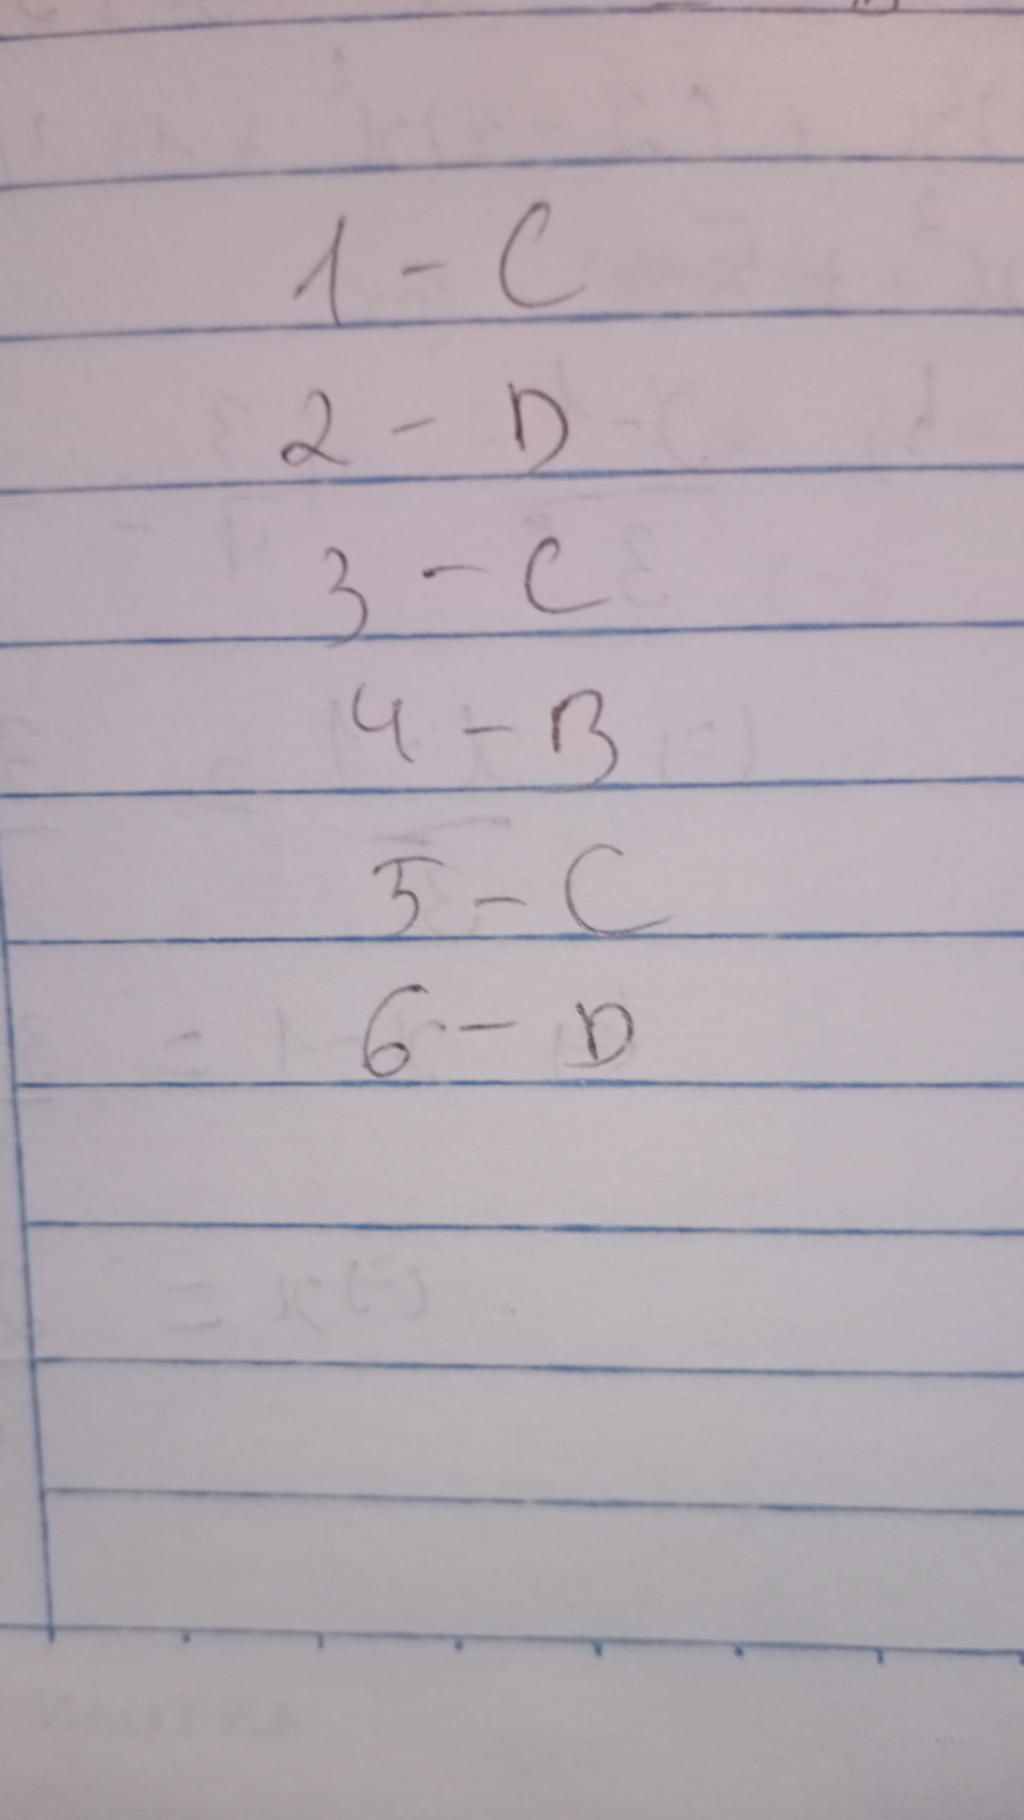 1 - C
2 - D
3 - C
4 - B
5 - C
6 - D